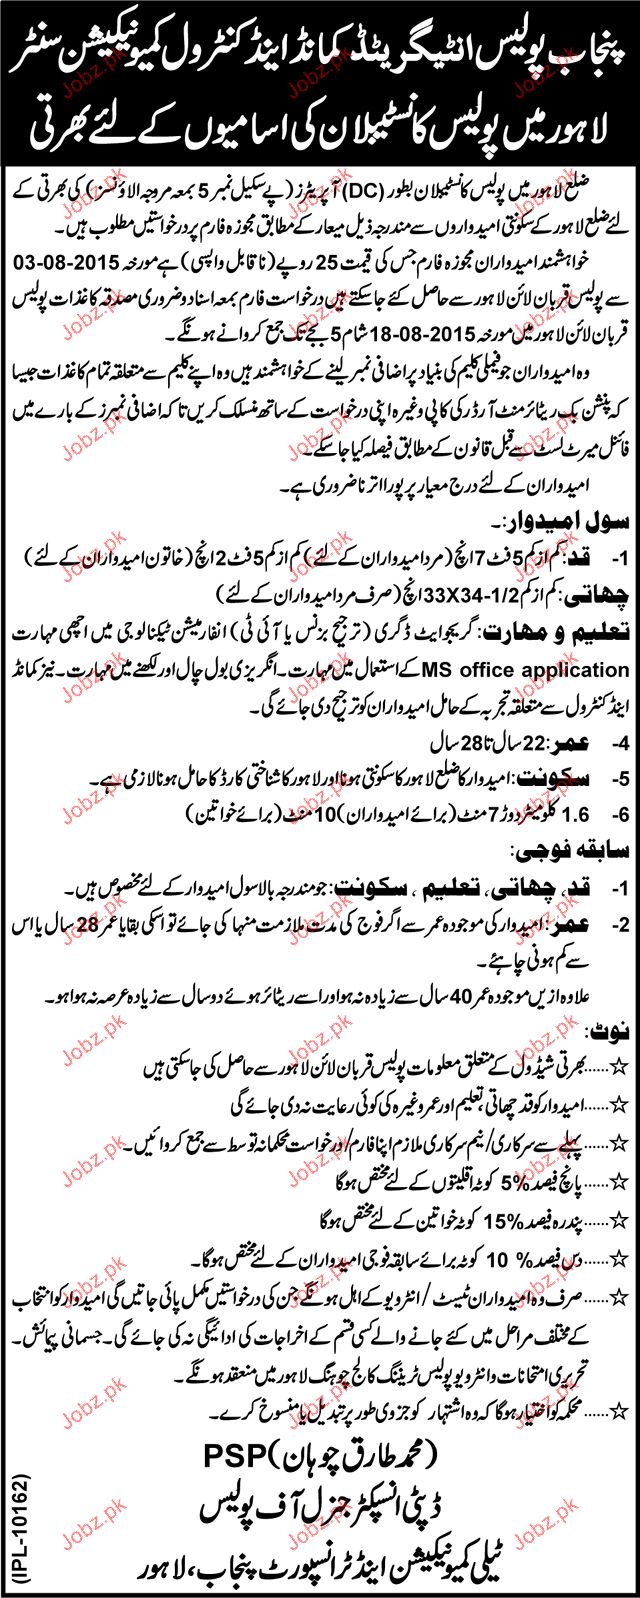 پنجاب پولیس انٹیگریٹڈ کمانڈ اینڈ کنٹرول کمیونیکیشن سنٹر
لاہور میں پولیس کانسٹیبلان کی اسامیوں کے لئے بھرتی
ضلع لاہور میں پولیس کانسٹیبلان بطور (DC) آپریٹرز (پے سکیل نمبر 5 بمعہ مروجہ الاؤنسز) کی بھرتی کے
لئے ضلع لاہور کے سکونتی امیدواروں سے مندرجہ ذیل معیار کے مطابق مجوزہ فارم پر درخواستیں مطلوب ہیں۔
خواہشمند امیدواران مجوزہ فارم جس کی قیمت 25 روپے (ناقابل واپسی) ہے مورخہ 03-08-2015
سے پولیس قربان لائن لاہور سے حاصل کئے جاسکتے ہیں درخواست فارم بمعہ اسناد و ضروری مصدقہ کاغذات پولیس
قربان لائن لاہور میں مورخہ 18-08-2015 شام 5 بجے تک جمع کروانے ہونگے۔
وہ امیدواران جو فیملی کلیم کی بنیاد پر اضافی نمبر لینے کے خواہشمند ہیں وہ اپنے کلیم سے متعلقہ تمام کاغذات جیسا
کہ پنشن بک ریٹائرمنٹ آرڈر کی کاپی وغیرہ اپنی درخواست کے ساتھ منسلک کریں تاکہ اضافی نمبرز کے بارے میں
فائنل میرٹ لسٹ سے قبل قانون کے مطابق فیصلہ کیا جاسکے۔
امیدواران کے لئے درج معیار پر پورا اترنا ضروری ہے۔
سول امیدوار:۔
1- قد: کم از کم 5 فٹ 7 انچ (مرد امیدواران کے لئے) کم از کم 5 فٹ 2 انچ (خاتون امیدواران کے لئے)
چھاتی: کم از کم 33X34-1/2 انچ (صرف مرد امیدواران کے لئے)
تعلیم و مہارت: گریجوایٹ ڈگری (ترجیح بزنس یا آئی ٹی) انفارمیشن ٹیکنالوجی میں اچھی مہارت
MS office application کے استعمال میں مہارت۔ انگریزی بول چال اور لکھنے میں مہارت۔ نیز کمانڈ
اینڈ کنٹرول سے متعلقہ تجربہ کے حامل امیدواران کو ترجیح دی جائے گی۔
4- عمر: 22 سال تا 28 سال
5- سکونت: امیدوار کا ضلع لاہور کا سکونتی ہونا اور لاہور کا شناختی کارڈ کا حامل ہونا لازمی ہے۔
6- 1.6 کلومیٹر دوڑ 7 منٹ (برائے امیدواران) 10 منٹ (برائے خواتین)
سابقہ فوجی:
1- قد، چھاتی، تعلیم، سکونت: جو مندرجہ بالا سول امیدوار کے لئے مخصوص ہیں۔
2- عمر: امیدوار کی موجودہ عمر سے اگر فوج کی مدت ملازمت منہا کی جائے تو اسکی بقایا عمر 28 سال یا اس
سے کم ہونی چاہئے۔
علاوہ ازیں موجودہ عمر 40 سال سے زیادہ نہ ہو اور اسے ریٹائر ہوئے دو سال سے زیادہ عرصہ نہ ہوا ہو۔
نوٹ:
☆......بھرتی شیڈول کے متعلق معلومات پولیس قربان لائن لاہور سے حاصل کی جاسکتی ہیں
☆......امیدوار کو قد چھاتی، تعلیم اور عمر وغیرہ کی کوئی رعایت نہ دی جائے گی
☆......پہلے سے سرکاری/نیم سرکاری ملازم اپنا فارم/درخواست محکمانہ توسط سے جمع کروائیں۔
☆......پانچ فیصد 5% کوٹہ اقلیتوں کے لئے مختص ہوگا
☆......پندرہ فیصد 15% کوٹہ خواتین کے لئے مختص ہوگا
☆......دس فیصد 10 % کوٹہ برائے سابقہ فوجی امیدواران کے لئے مختص ہوگا۔
☆......صرف وہ امیدواران ٹیسٹ/انٹرویو کے اہل ہونگے جن کی درخواستیں مکمل پائی جائیں گی امیدوار کو انتخاب
کے مختلف مراحل میں کئے جانے والے کسی قسم کے اخراجات کی ادائیگی نہ کی جائے گی۔ جسمانی پیمائش۔
تحریری امتحانات و انٹرویو پولیس ٹریننگ کالج چوہنگ لاہور میں منعقد ہونگے۔
☆......محکمہ کو اختیار ہوگا کہ وہ اشتہار کو جزوی طور پر تبدیل یا منسوخ کرے۔
(محمد طارق چوہان) PSP
ڈپٹی انسپکٹر جنرل آف پولیس
ٹیلی کمیونیکیشن اینڈ ٹرانسپورٹ پنجاب، لاہور
(IPL-10162)